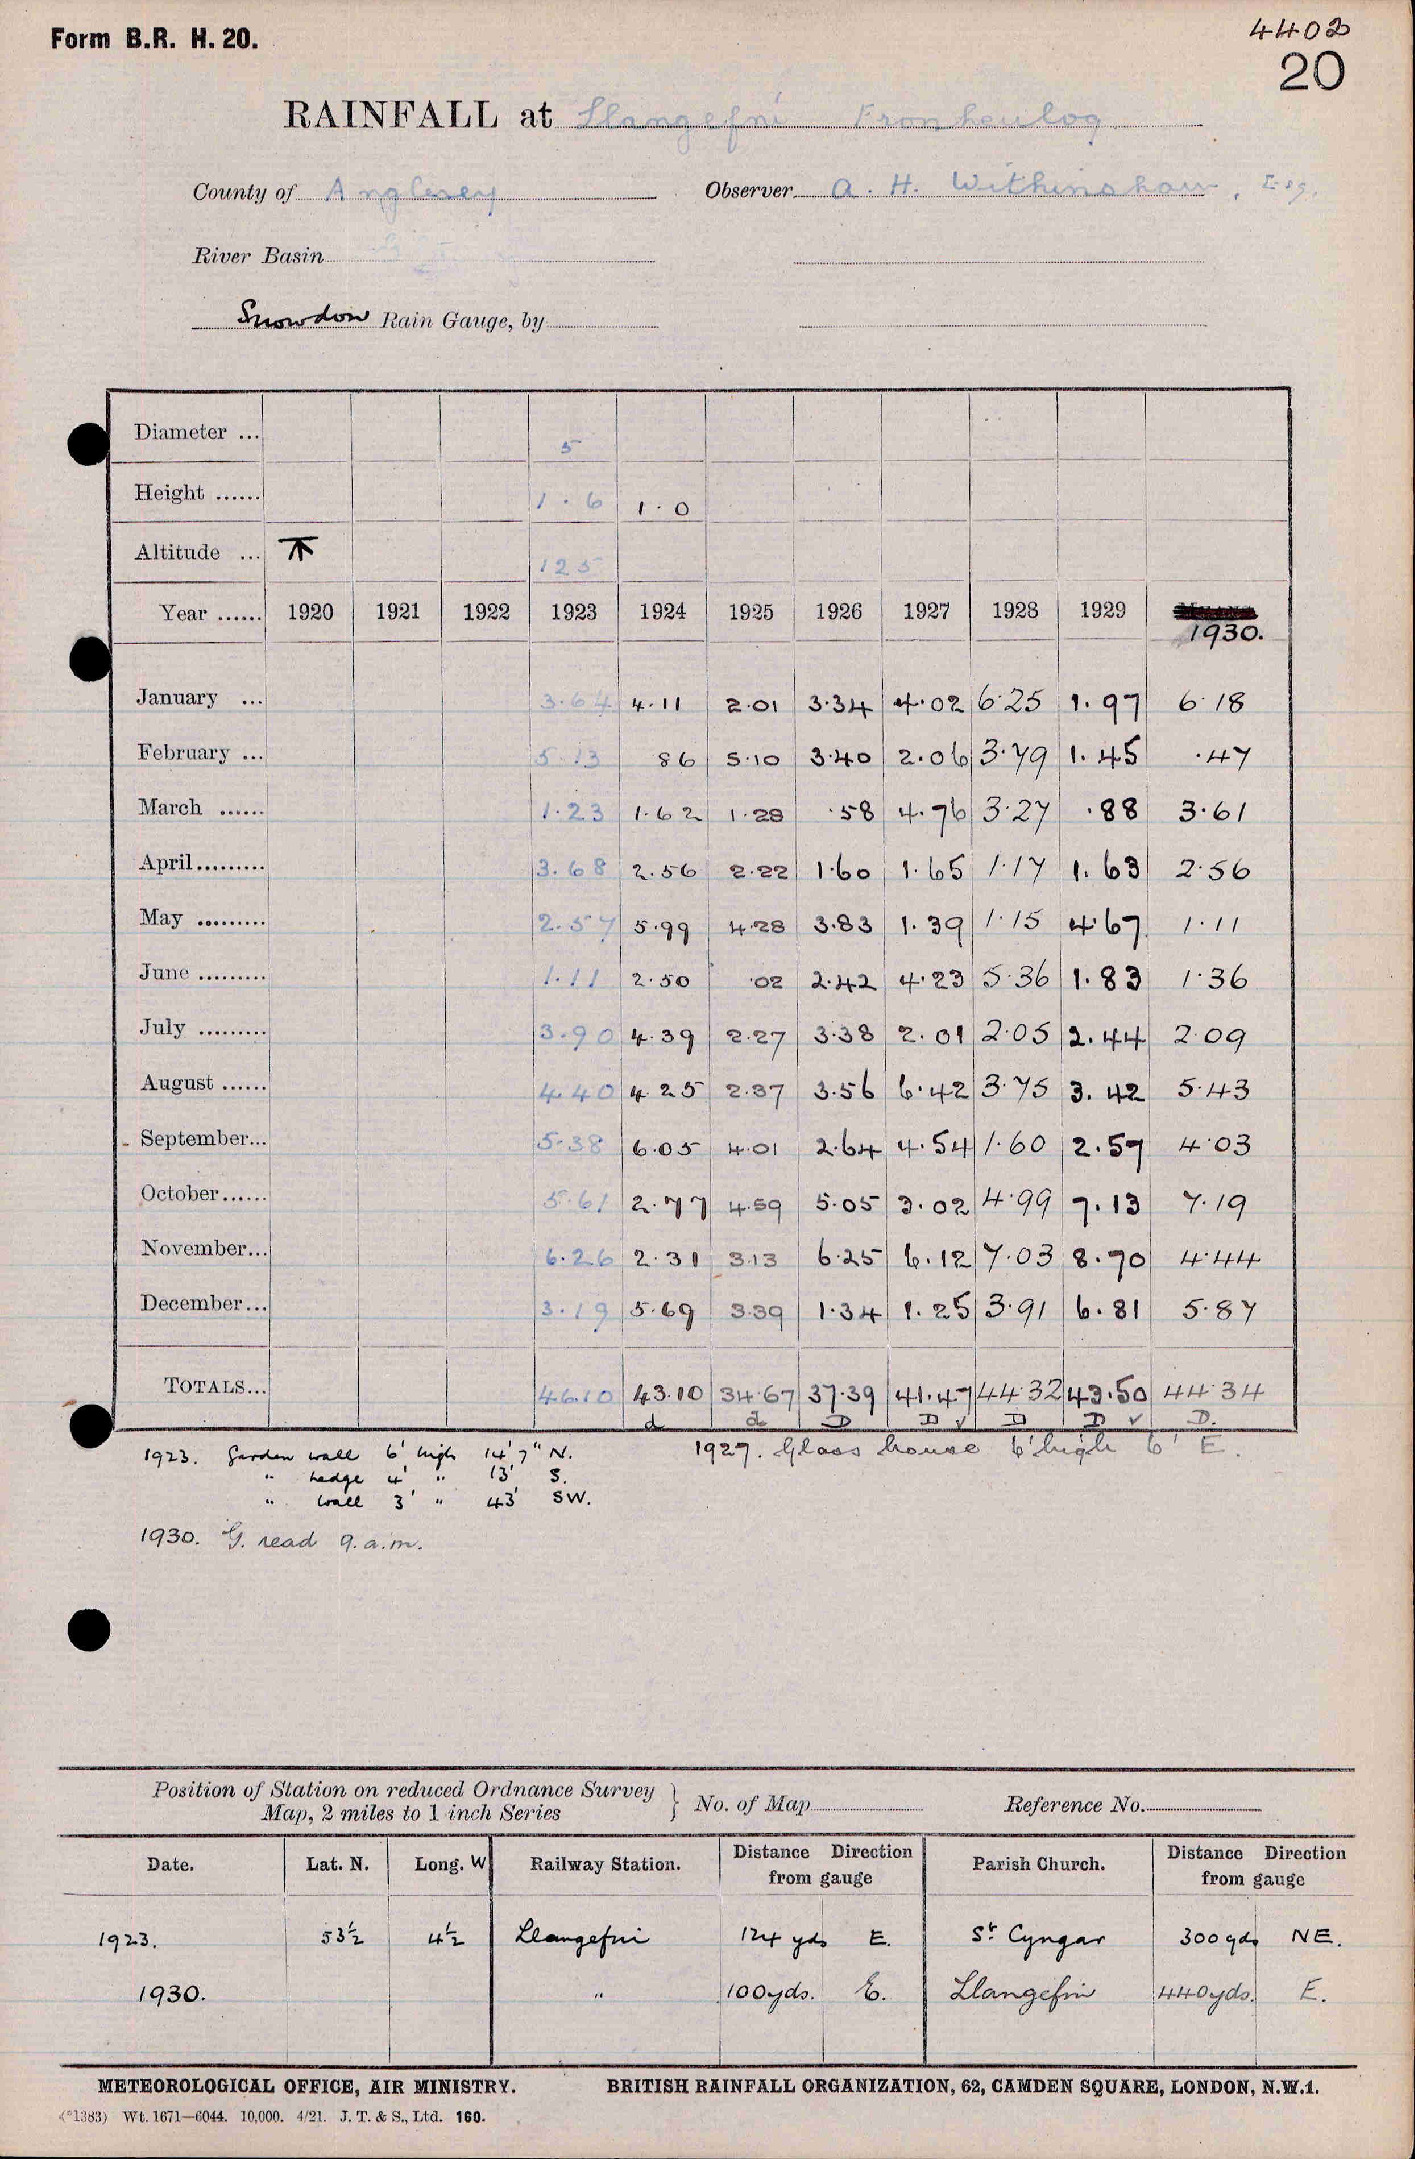 Form B.R. H. 20.
4402
20
RAINFALL at Llangefni Fronheulog
County of Anglesey Observer A. H. Withinshaw, Esq.
River Basin
Snowdon Rain Gauge, by
Diameter ... 5
Height ...... 1·6 1·0
Altitude ... 125
Year ...... 1920 1921 1922 1923 1924 1925 1926 1927 1928 1929 1930.
January ... 3·64 4·11 2·01 3·34 4·02 6·25 1·97 6·18
February ... 5·13 86 5·10 3·40 2·06 3·79 1·45 ·47
March ...... 1·23 1·62 1·28 ·58 4·76 3·27 ·88 3·61
April......... 3·68 2·56 2·22 1·60 1·65 1·17 1·63 2·56
May ......... 2·57 5·99 4·28 3·83 1·39 1·15 4·67 1·11
June ......... 1·11 2·50 ·02 2·42 4·23 5·36 1·83 1·36
July ......... 3·90 4·39 2·27 3·38 2·01 2·05 2·44 2·09
August ...... 4·40 4·25 2·37 3·56 6·42 3·75 3·42 5·43
September... 5·38 6·05 4·01 2·64 4·54 1·60 2·57 4·03
October...... 5·61 2·77 4·59 5·05 3·02 4·99 7·13 7·19
November... 6·26 2·31 3·13 6·25 6·12 7·03 8·70 4·44
December... 3·19 5·69 3·39 1·34 1·25 3·91 6·81 5·87
TOTALS... 46·10 43·10 34·67 37·39 41·47 44·32 43·50 44·34
d d D D ✓ D D ✓ D.
1923. Garden wall 6' high 14' 7" N. 1927. Glass house 6' high 6' E.
" hedge 4' " 13' S.
" wall 3' " 43' SW.
1930. G. read 9.a.m.
Position of Station on reduced Ordnance Survey
Map, 2 miles to 1 inch Series } No. of Map Reference No.
Date. Lat. N. Long. W Railway Station. Distance Direction from gauge Parish Church. Distance Direction from gauge
1923. 53½ 4½ Llangefni 124 yds E. St. Cyngar 300 yds NE.
1930. " 100yds. E. Llangefni 440yds. E.
METEOROLOGICAL OFFICE, AIR MINISTRY. BRITISH RAINFALL ORGANIZATION, 62, CAMDEN SQUARE, LONDON, N.W.1.
(*1383) Wt. 1671—6044. 10,000. 4/21. J. T. & S., Ltd. 160.